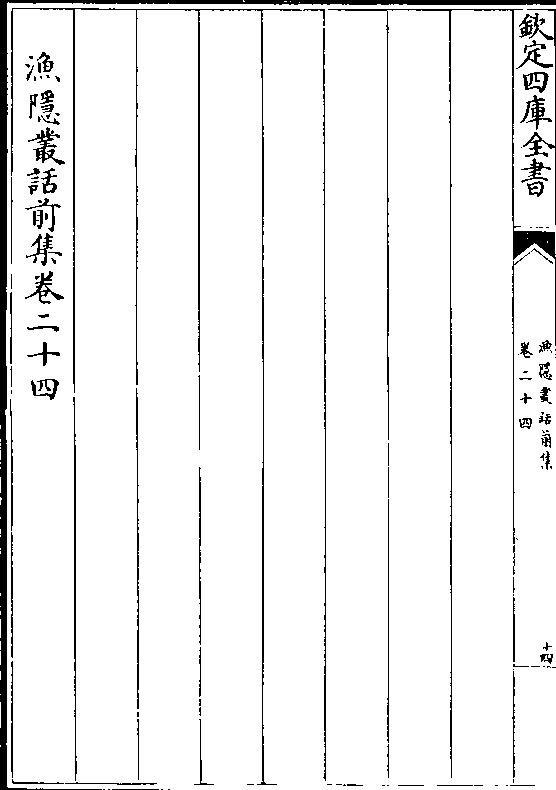 欽定四庫全書
漁隱叢話前集
卷二十四
十四
漁隱叢話前集卷二十四